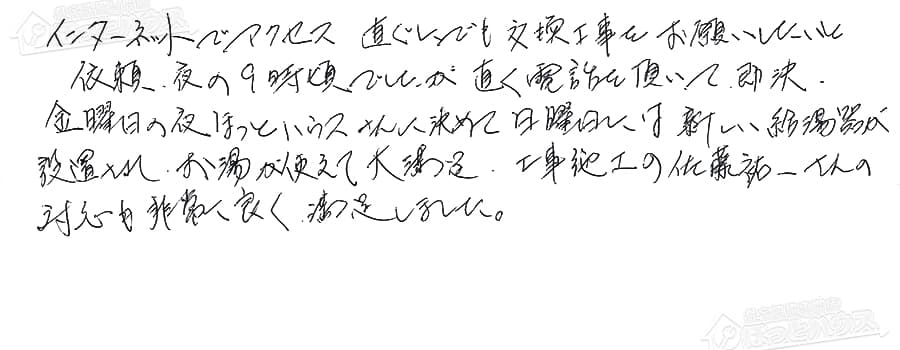 インターネットでアクセス 直ぐにでも交換工事をお願いしたいと
依頼.夜の9時頃でしたが直ぐ電話を頂いて即決.
金曜日の夜ほっとハウスさんに決めて日曜日には新しい給湯器が
設置され.お湯が使えて大満足.工事施工の佐藤祐一さんの
対応も非常に良く満足しました。
ほっとハウス
ほっとハウス